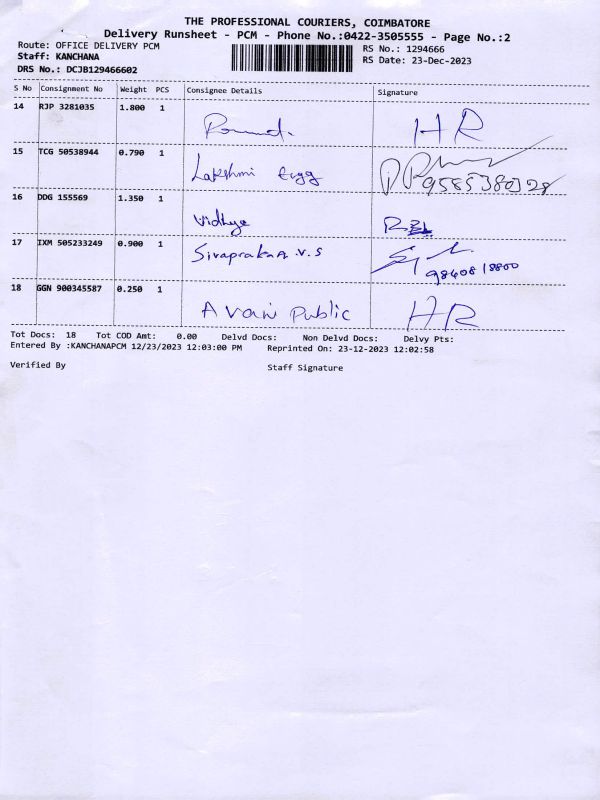 THE PROFESSIONAL COURIERS, COIMBATORE
Delivery Runsheet - PCM - Phone No.:0422-3505555 - Page No.:2
Route: OFFICE DELIVERY PCM
Staff: KANCHANA
DRS No.: DCJB129466602
RS No.: 1294666
RS Date: 23-Dec-2023
S No Consignment No Weight PCS Consignee Details Signature
14 RJP 3281035 1.800 1
HR
15 TCG 50538944 0.790 1
Lakshmi Engg 9585538032
16 DDG 155569 1.350 1
Vidhya
17 IXM 505233249 0.900 1
Sivaprakash.V.S
9840818800
18 GGN 900345587 0.250 1
Avani Public HR
Tot Docs: 18 Tot COD Amt: 0.00 Delvd Docs: Non Delvd Docs: Delvy Pts:
Entered By :KANCHANAPCM 12/23/2023 12:03:00 PM Reprinted On: 23-12-2023 12:02:58
Verified By Staff Signature